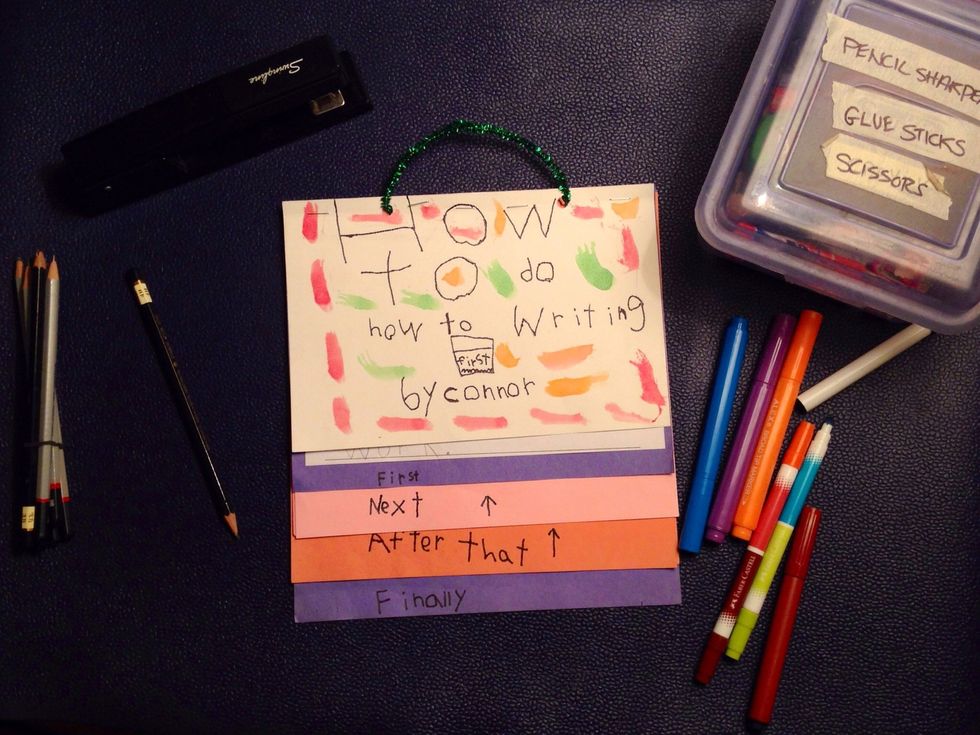 Swingline
PENCIL SHARPE
GLUE STICKS
SCISSORS
How
To do
how to Writing
first
by connor
Work.
First
Next ↑
After that ↑
Finally
FABER-CASTELL